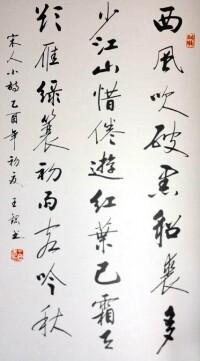 西風吹破黑貂裘多
少江山惜倦遊紅葉已霜天
欲雁綠蓑初雨客吟秋
宋人小詩乙酉年初夏 王 书